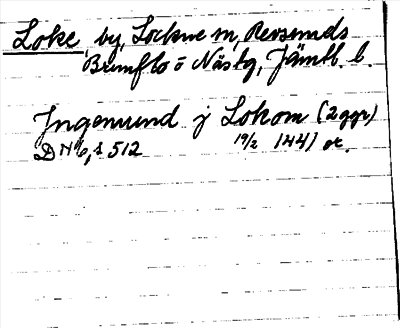 Loke, by, Lockne sn, Revsunds
Brunflo o Näs tg, Jämtl. l.
Jngemund j Lokom (2 ggr)
DN 6, s 512 19/2 1441 or.